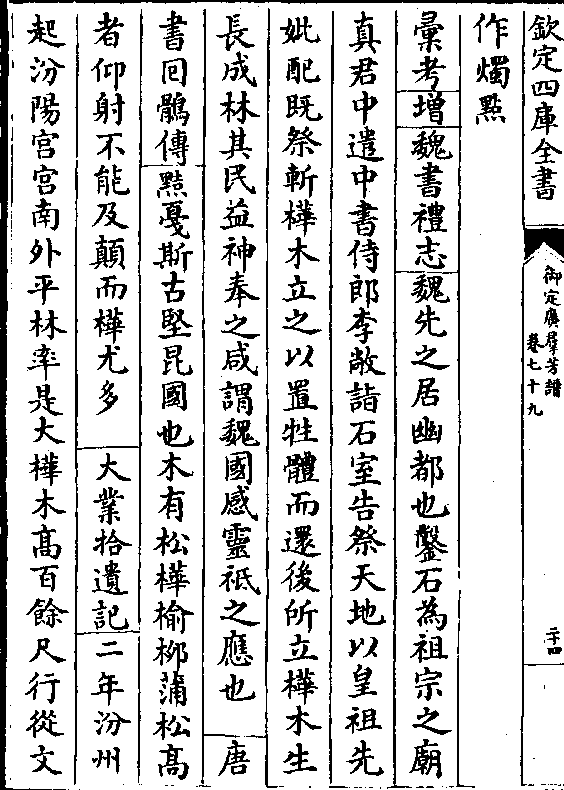 欽定四庫全書
御定廣羣芳譜
卷七十九
二十四
作燭㸃
彙考增魏書禮志魏先之居幽都也鑿石為祖宗之廟
真君中遣中書侍郎李敞詣石室告祭天地以皇祖先
妣配既祭斬樺木立之以置牲體而還後所立樺木生
長成林其民益神奉之咸謂魏國感靈祇之應也 唐
書囘鶻傳㸃戛斯古堅昆國也木有松樺榆柳蒲松髙
者仰射不能及顛而樺尤多 大業拾遺記二年汾州
起汾陽宫宫南外平林率是大樺木髙百餘尺行從文